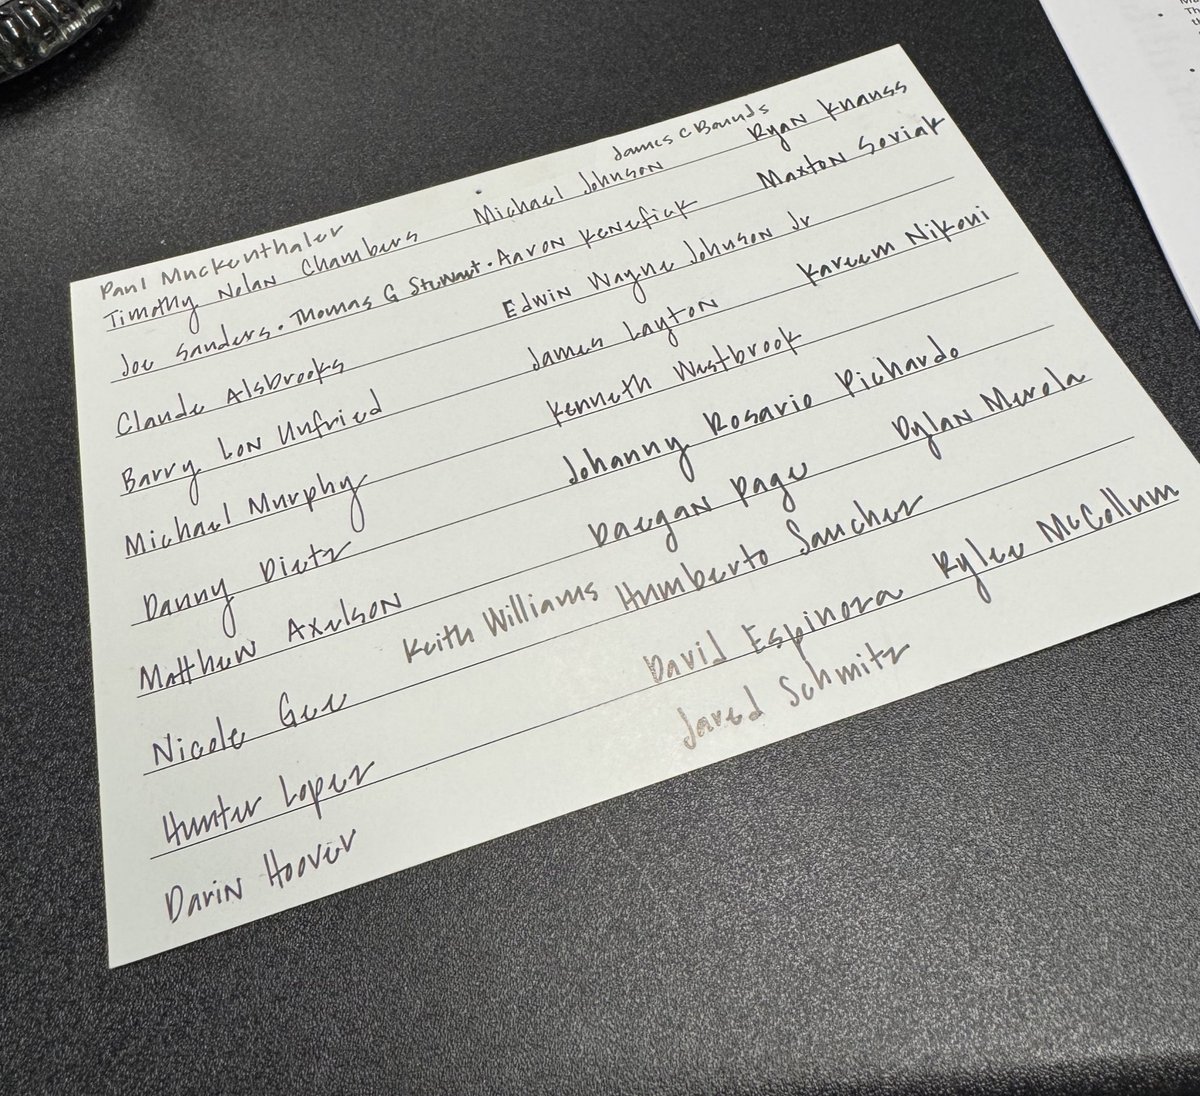 James C Bounds
Paul Muckenthaler
Timothy Nolan Chambers Michael Johnson Ryan Knauss
Joe Sanders. Thomas G Stewart. Aaron Kenefick Maxton Soviak
Claude Alsbrooks Edwin Wayne Johnson Jr
Barry Lon Unfried James Layton Kareem Nikoui
Michael Murphy Kenneth Westbrook
Danny Dietz Johanny Rosario Pichardo
Matthew Axelson Daegan Page Dylan Merola
Nicole Gee Keith Williams Humberto Sanchez
Hunter Lopez David Espinoza Rylee McCollum
Darin Hoover Jared Schmitz